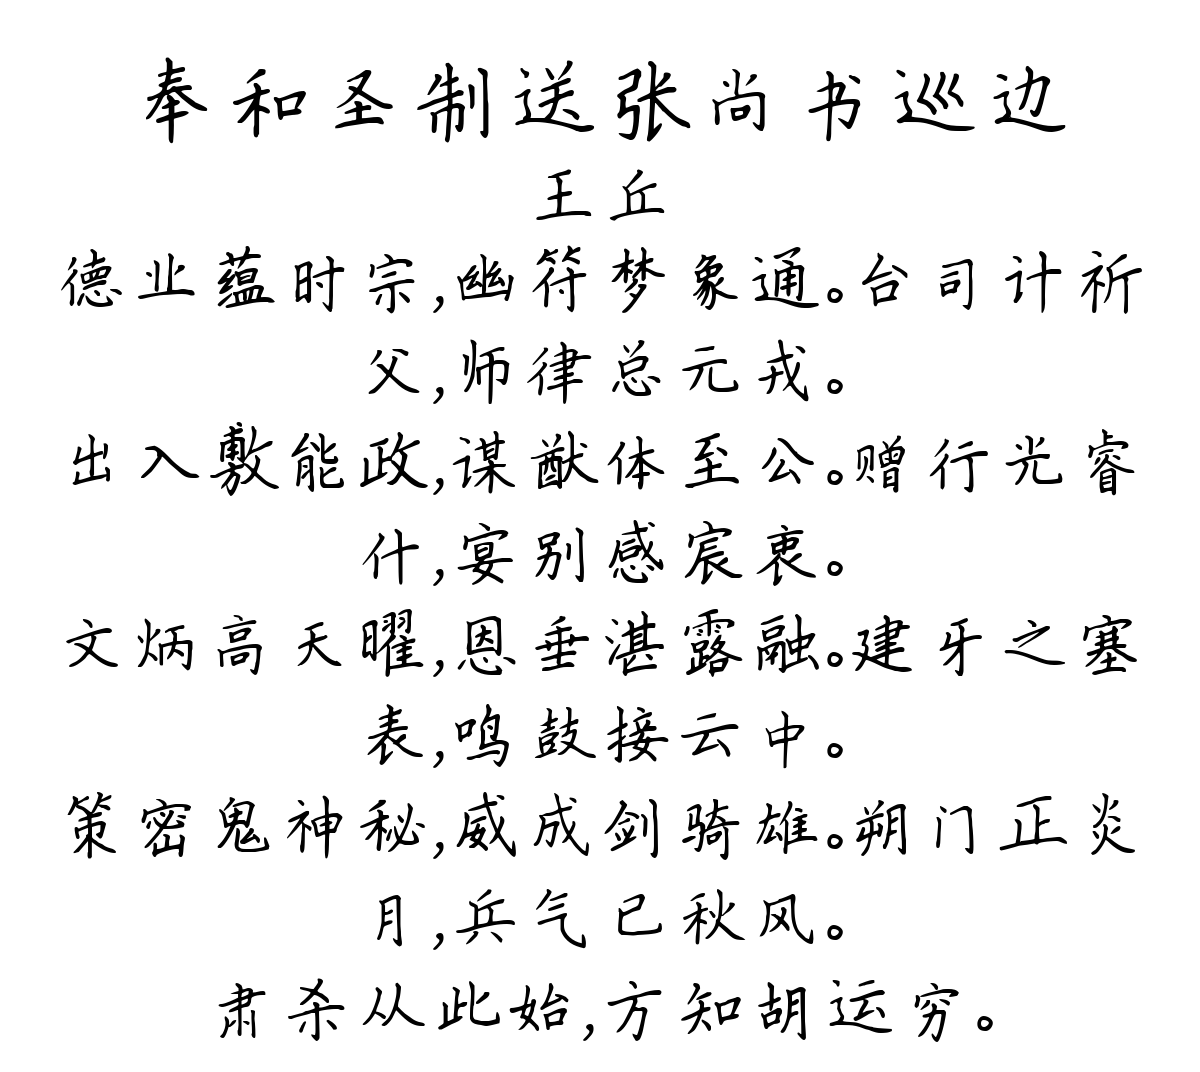 奉和圣制送张尚书巡边
王丘
德业蕴时宗,幽符梦象通。台司计祈
父,师律总元戎。
出入敷能政,谋猷体至公。赠行光睿
什,宴别感宸衷。
文炳高天曜,恩垂湛露融。建牙之塞
表,鸣鼓接云中。
策密鬼神秘,威成剑骑雄。朔门正炎
月,兵气已秋风。
肃杀从此始,方知胡运穷。